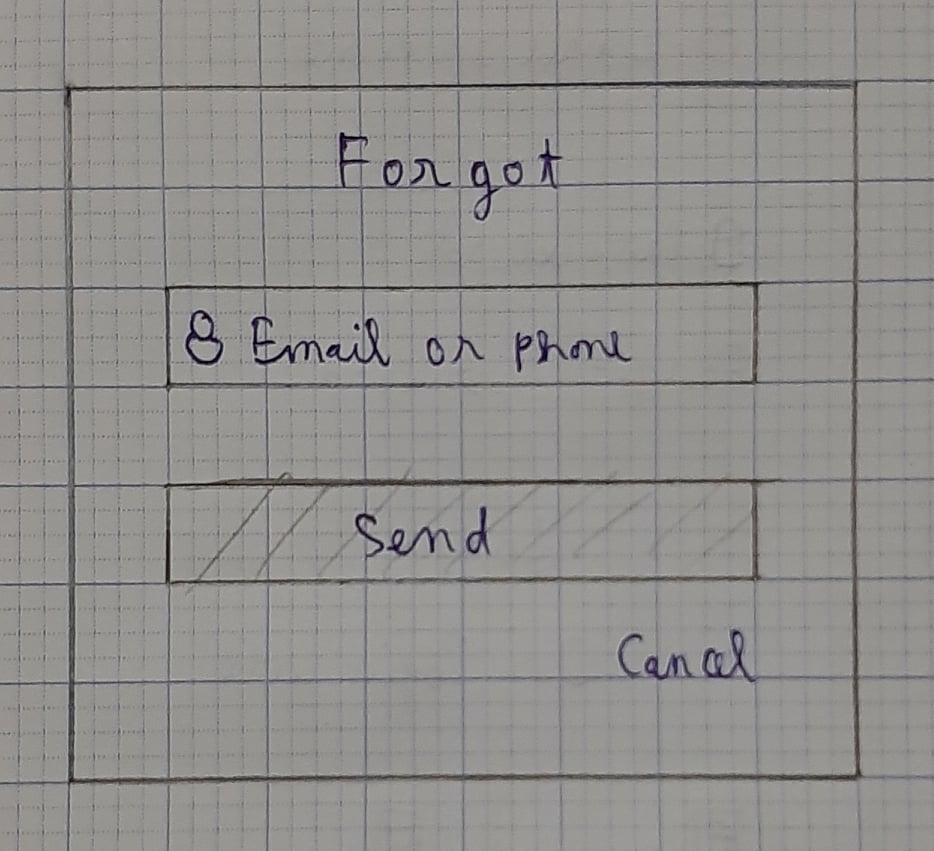 Forgot
Email or phone
Send
Cancel